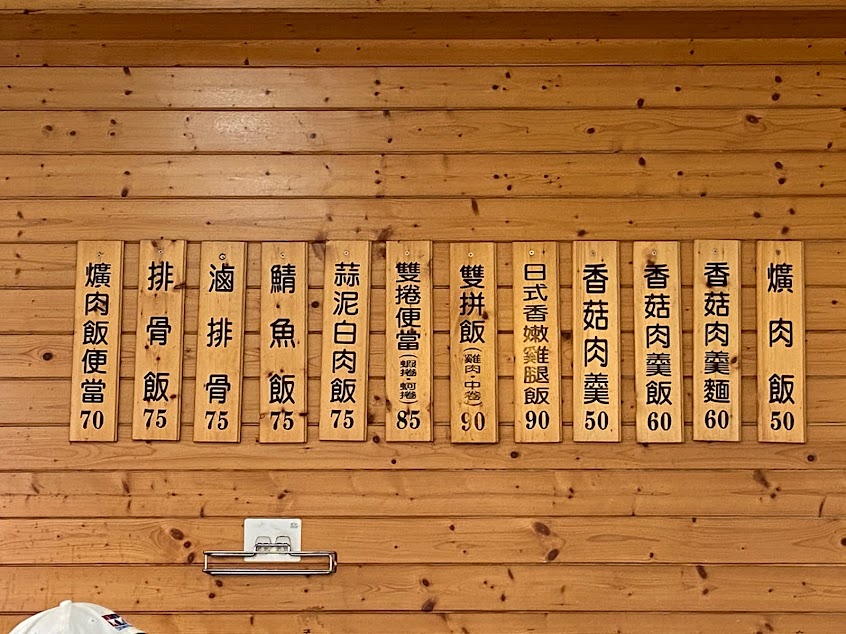 爌肉飯 50
香菇肉羹麵 60
香菇肉羹飯 60
香菇肉羹 50
日式香嫩雞腿飯 90
雙拼飯(雞肉·中卷) 90
雙捲便當(蝦捲·蚵捲) 85
蒜泥白肉飯 75
鯖魚飯 75
滷排骨 75
排骨飯 75
爌肉飯便當 70